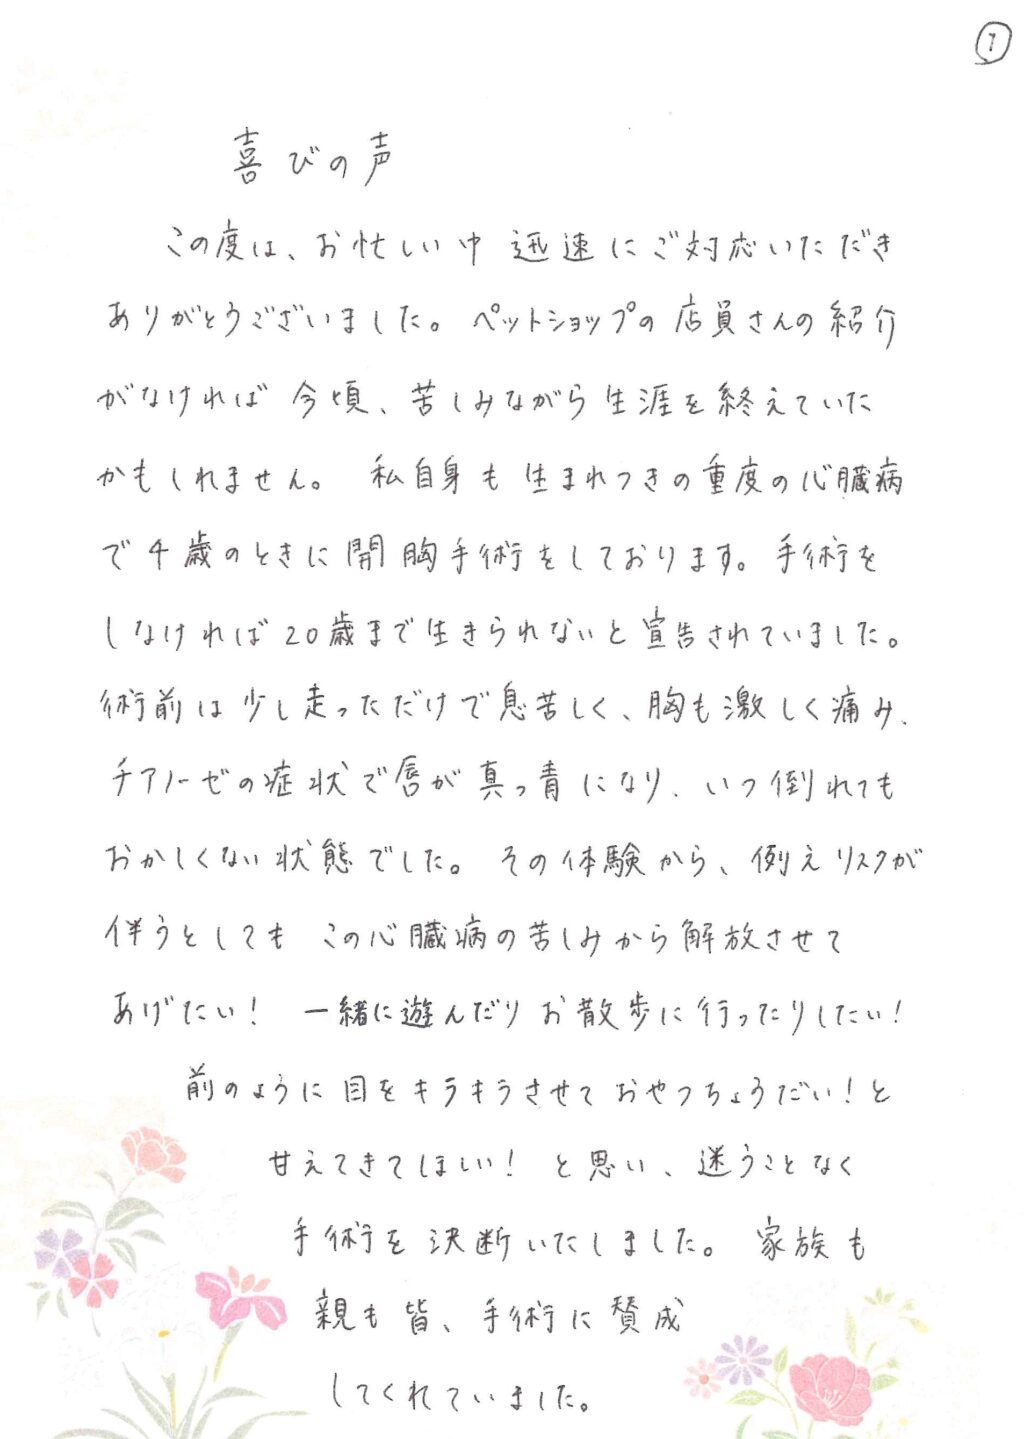 ①
喜びの声
この度は、お忙しい中 迅速にご対応いただき
ありがとうございました。ペットショップの店員さんの紹介
がなければ 今頃、苦しみながら生涯を終えていた
かもしれません。 私自身も生まれつきの重度の心臓病
で4歳のときに開胸手術をしております。手術を
しなければ20歳まで生きられないと宣告されていました。
術前は少し走っただけで息苦しく、胸も激しく痛み、
チアノーゼの症状で唇が真っ青になり、いつ倒れても
おかしくない状態でした。その体験から、例えリスクが
伴うとしても この心臓病の苦しみから解放させて
あげたい! 一緒に遊んだりお散歩に行ったりしたい!
前のように目をキラキラさせておやつちょうだい!と
甘えてきてほしい! と思い、迷うことなく
手術を決断いたしました。 家族も
親も皆、手術に賛成
してくれていました。